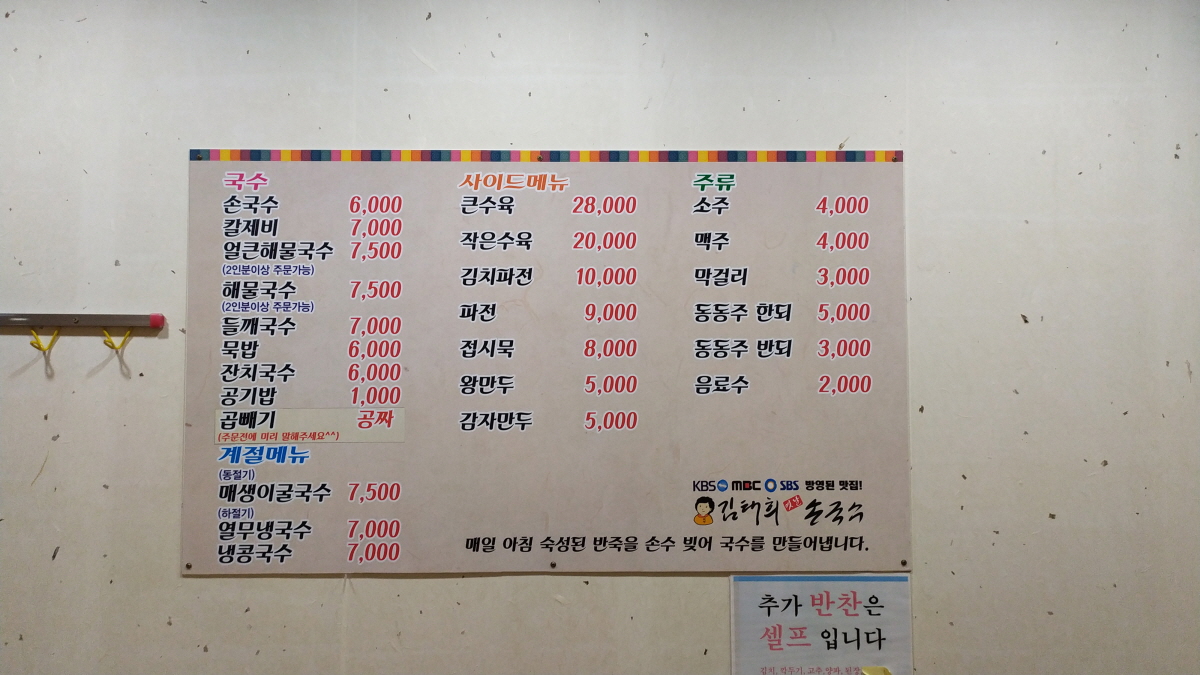 국수
손국수 6,000
칼제비 7,000
얼큰해물국수 7,500
(2인분이상 주문가능)
해물국수 7,500
(2인분이상 주문가능)
들깨국수 7,000
묵밥 6,000
잔치국수 6,000
공기밥 1,000
곱빼기 공짜
(주문전에 미리 말해주세요^^)
계절메뉴
(동절기)
매생이굴국수 7,500
(하절기)
열무냉국수 7,000
냉콩국수 7,000
사이드메뉴
큰수육 28,000
작은수육 20,000
김치파전 10,000
파전 9,000
접시묵 8,000
왕만두 5,000
감자만두 5,000
주류
소주 4,000
맥주 4,000
막걸리 3,000
동동주 한되 5,000
동동주 반되 3,000
음료수 2,000
KBS MBC SBS 방영된 맛집!
김태희 손국수
매일 아침 숙성된 반죽을 손수 빚어 국수를 만들어냅니다.
추가 반찬은
셀프 입니다
김치, 깍두기, 고추, 양파, 된장